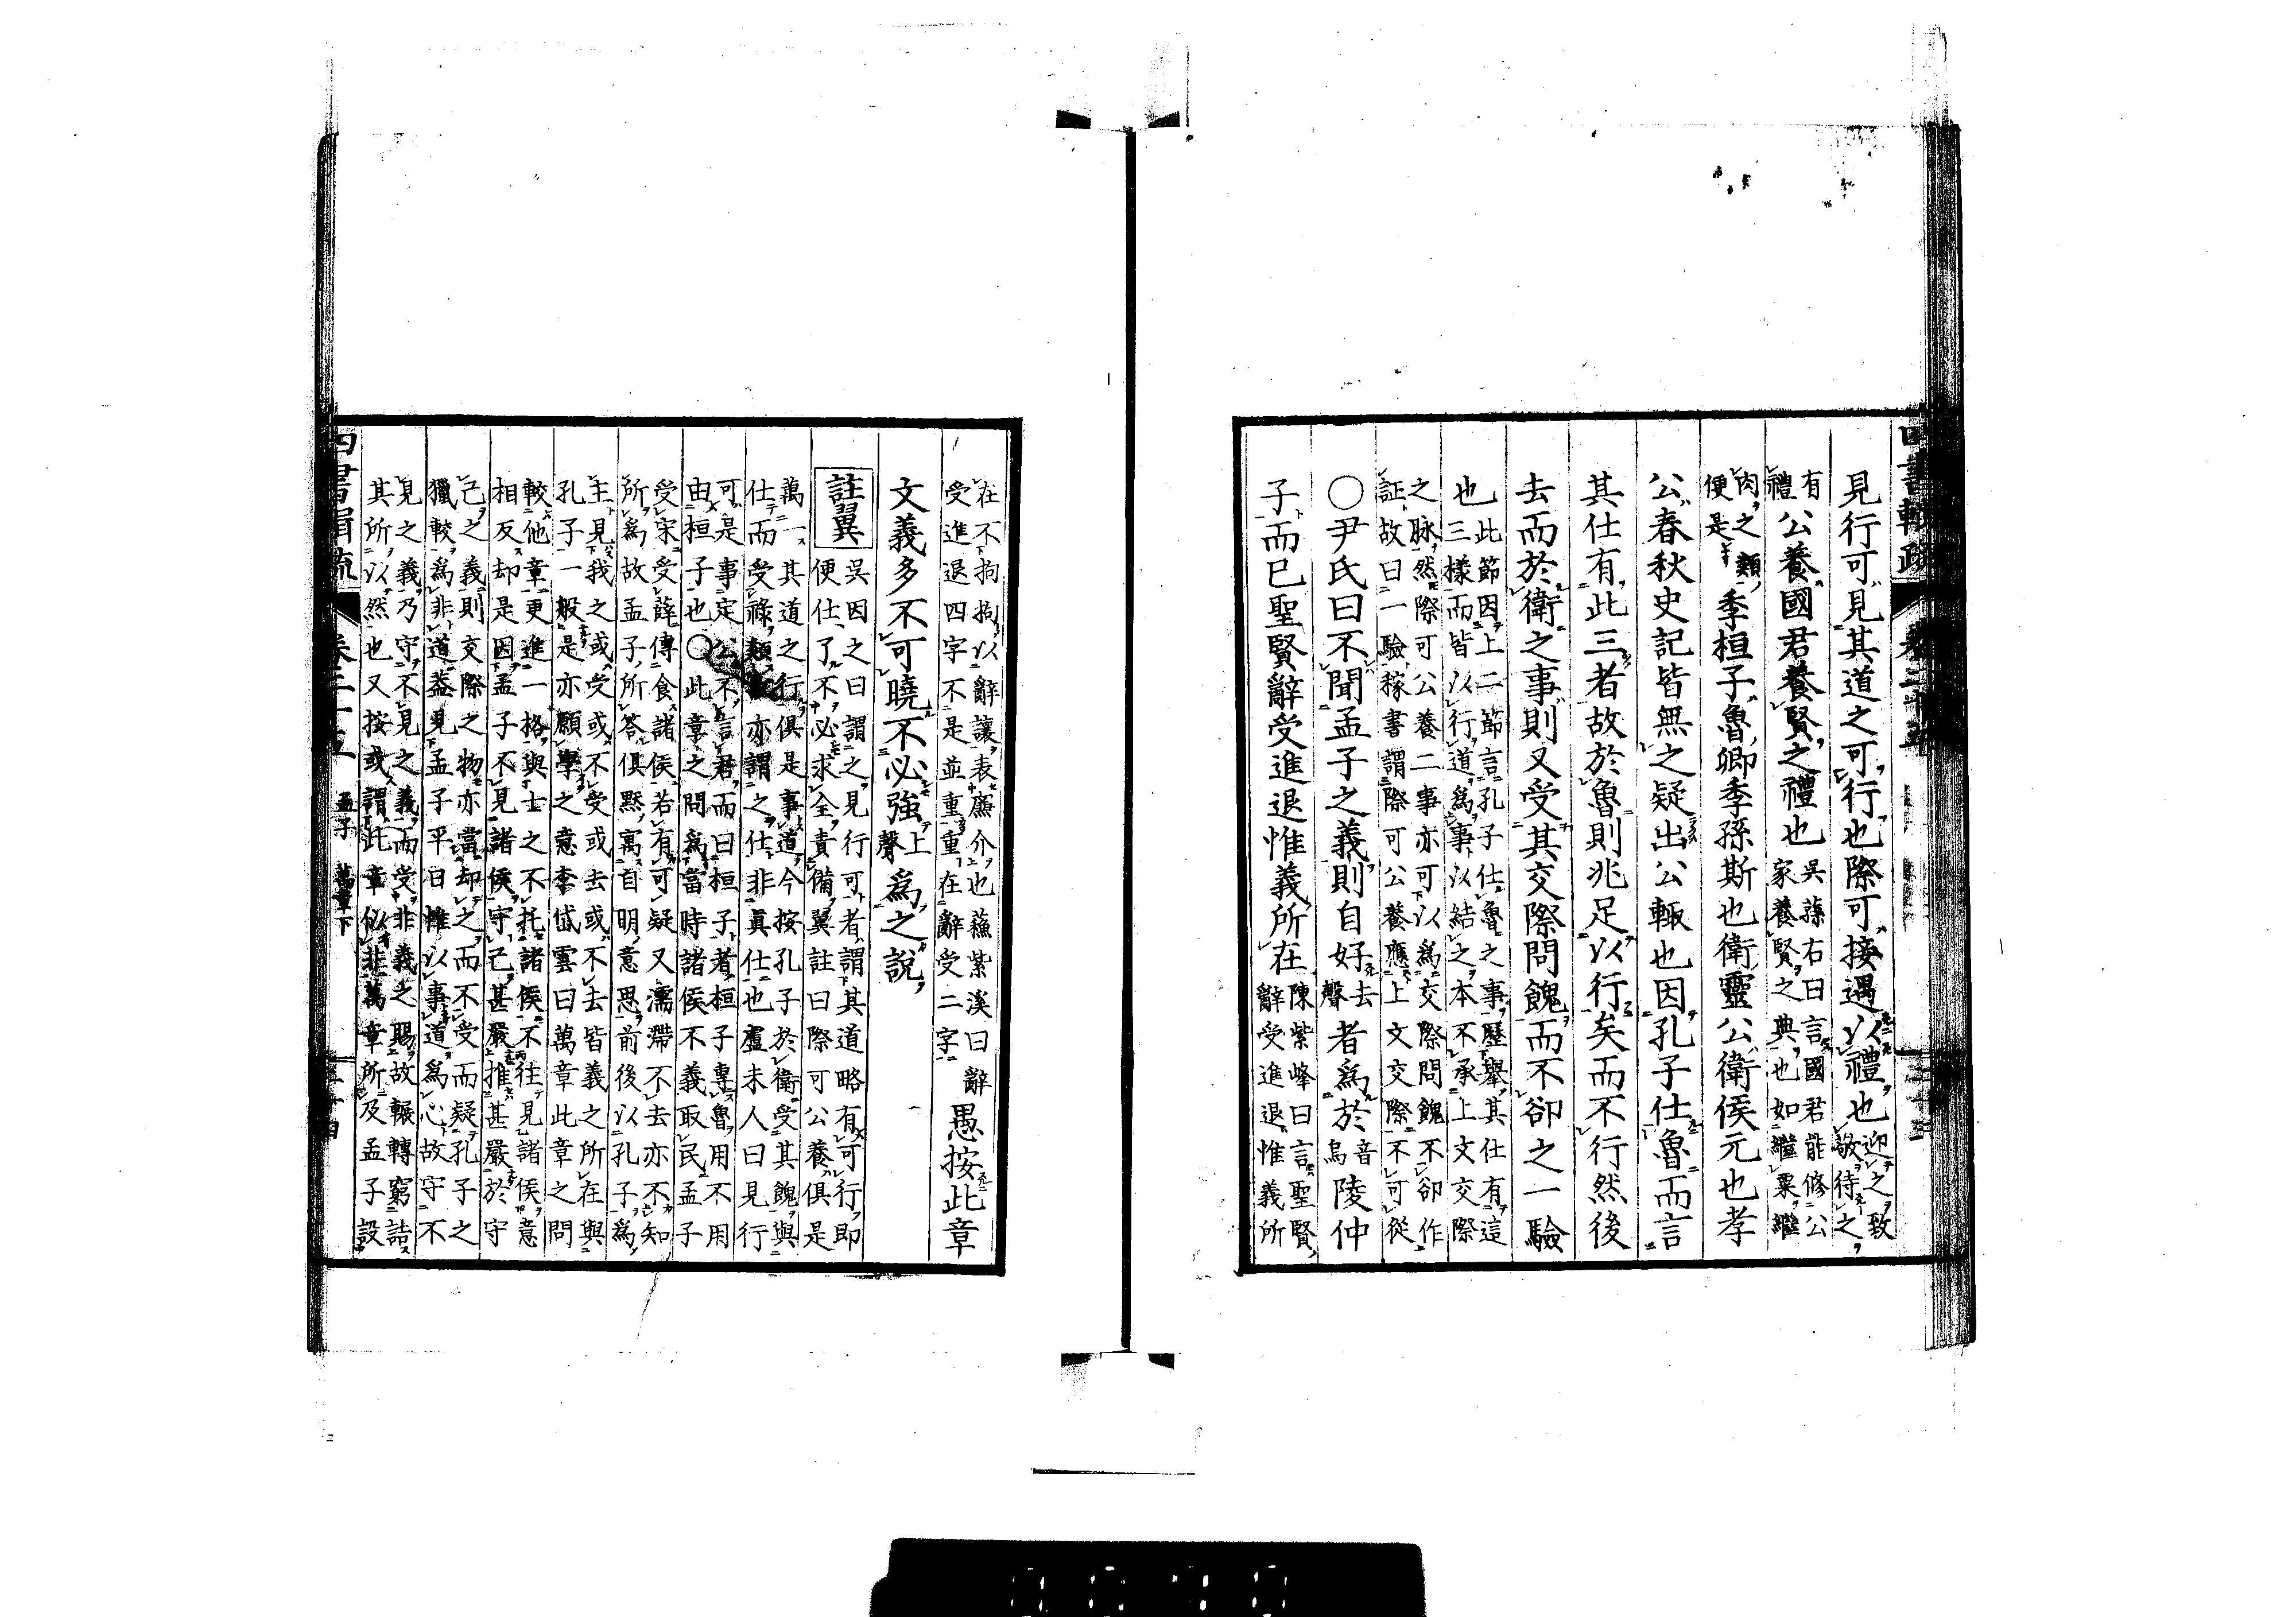 見行可見其道之可行也際可接遇以禮也迎之致敬待之
有禮公養國君養賢之禮也吳蓀右曰言國君能修公家養賢之典也如繼粟繼
肉之類便是季桓子魯卿季孫斯也衛靈公衛侯元也孝
公春秋史記皆無之疑出公輒也因孔子仕魯而言
其仕有此三者故於魯則兆足以行矣而不行然後
去而於衛之事則又受其交際問餽而不卻之一驗
也此節因上二節言孔子仕魯之事歷舉其仕有這三樣而皆以行道為事以結之本不承上文交際
之脉然際可公養二事亦可以為交際問餽不卻作証故曰一驗稼書謂際可公養應上文交際不可從
○尹氏曰不聞孟子之義則自好去聲者為於音烏陵仲
子而已聖賢辭受進退惟義所在陳紫峰曰言聖賢辭受進退惟義所
在不拘拘以辭讓表廉介也蘓紫溪曰辭受進退四字不是並重重在辭受二字愚按此章
文義多不可曉不必強上聲為之說
註翼吳因之曰謂之見行可者謂其道略有可行即便仕了不必求全責備翼註曰際可公養俱是
萬一其道之行俱是事道今按孔子於衛受其餽與仕而受祿類亦謂之仕非真仕也盧未人曰見行
可是事定公不言君而曰桓子者桓子專魯用不用由桓子也○此章之問為當時諸侯不義取民孟子
受宋受薛傳食諸侯若有可疑又濡滯不去亦不知所為故孟子所答俱默寓自明意思前後以孔子為
主見我之或受或不受或去或不去皆義之所在與孔子一般是亦願學之意李岱雲曰萬章此章之問
較他章更進一格與士之不托諸侯不往見諸侯意相反却是因孟子不見諸侯守己甚嚴推甚嚴於守
己之義則交際之物亦當却之而不受而疑孔子之獵較為非道葢見孟子平日惟以事道為心故守不
見之義乃守不見之義而受非義之賜故輾轉窮詰其所以然也又按或謂此章似非萬章所及孟子設
四書輯疏 卷二十五 孟子 萬章下